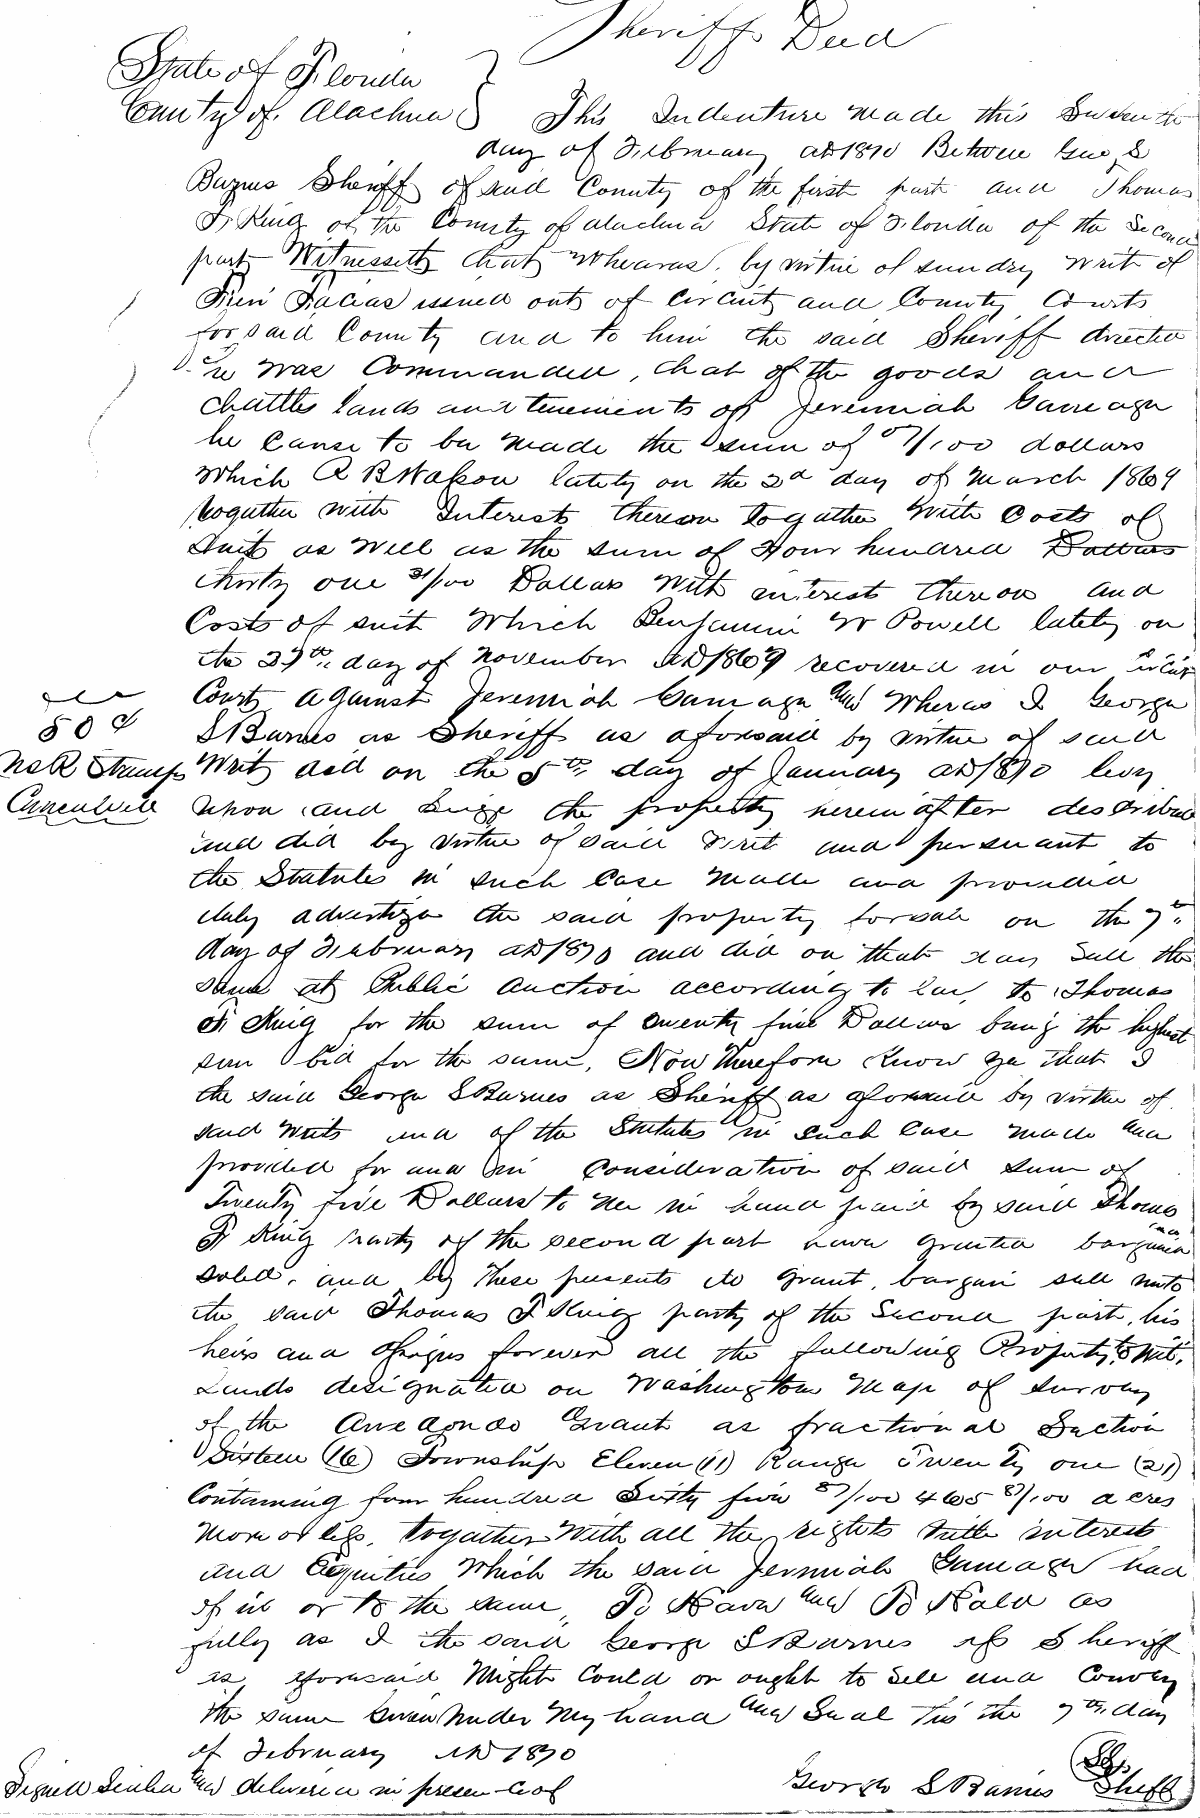 Sheriffs Deed
State of Florida
County of Alachua } This Indenture made this Seventh
day of February AD 1870 Between Geo S
Barnes Sheriff of said County of the first part and Thomas
F King of the County of Alachua State of Florida of the Second
part Witnesseth that Wheareas, by virtue of sundry Writ of
Fieri Facias issued out of Circuit and County Courts
for said County and to him the said Sheriff directed
he was Commanded, that of the goods and
chattles lands and tenements of Jeremiah Gamage
he cause to be made the sum of /100 dollars
Which A B lately on the 2d day of March 1869
togather with Interest thereon togather With Costs of
Suit as Well as the sum of Four hundred Dollars
thirty one 31/100 Dollars With interest thereon and
Costs of suit Which Benjamin W Powell lately on
the 27th day of November AD 1869 recovered in our Circuit
Court against Jeremiah Gamage and Wheras I George
S Barnes as Sheriff as aforesaid by virtue of said
50 ¢
Stamp
Cancelled
Writs did on the 5th day of January AD 1870 levy
upon and Seize the property hereinafter described
and did by virtue of said Writ and persuant to
the Statutes in such Case Made and provided
duly advertize the said property for sale on the 7th
day of February AD 1870 and did on that day Sell the
same at Public Auction according to law, to Thomas
F King for the sum of twenty five Dollars being the highest
sum bid for the same, Now Therefore Know ye that I
the said George S Barnes as Sheriff as aforesaid by virtue of
said Writs and of the Statutes in such Case made and
provided for and in Consideration of said sum of
Twenty five Dollars to Me in hand paid by said Thomas
F King party of the second part have granted bargained
sold, and by these presents do grant, bargain sell unto
the said Thomas F King party of the Second part, his
heirs and assigns forever all the following Property, to Wit,
Lands designated on Washington Map of Survey
of the Arredondo Grant as fractional Section
Sixteen (16) Township Eleven (11) Range Twenty one (21)
Containing four hundred Sixty five 87/100 465 87/100 acres
More or less, together With all the rights title interest
and Equities Which the said Jeremiah Gamage had
of in or to the same, To Have and To Hold as
fully as I the said George S Barnes as Sheriff
as aforesaid Might Could or ought to Sell and Convey
the same Given Under My hand and Seal this the 7th day
of February AD 1870
Signed Sealed and delivered in presence of
George S Barnes Shff